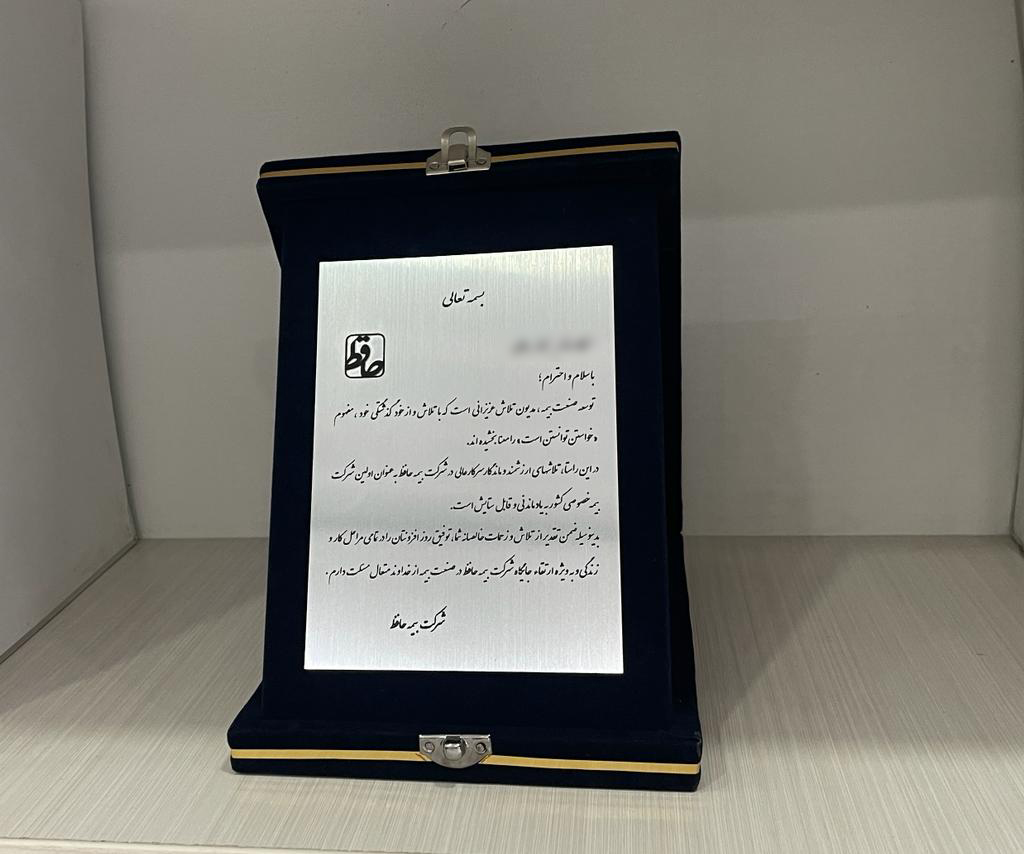 بسمه تعالی
حافظ
با سلام و احترام؛
توسعه صنعت بیمه، مدیون تلاش عزیزانی است که با تلاش و از خود گذشتگی خود، مفهوم
«خواستن توانستن است» را معنا بخشیده اند.
در این راستا، تلاشهای ارزشمند و ماندگار سرکارعالی در شرکت بیمه حافظ به عنوان اولین شرکت
بیمه خصوصی کشور به یاد ماندنی و قابل ستایش است.
بدینوسیله ضمن تقدیر از تلاش و زحمات خالصانه شما، توفیق روز افزونتان را در تمامی مراحل کار و
زندگی و به ویژه ارتقاء جایگاه شرکت بیمه حافظ در صنعت بیمه از خداوند متعال مسئلت دارم.
شرکت بیمه حافظ